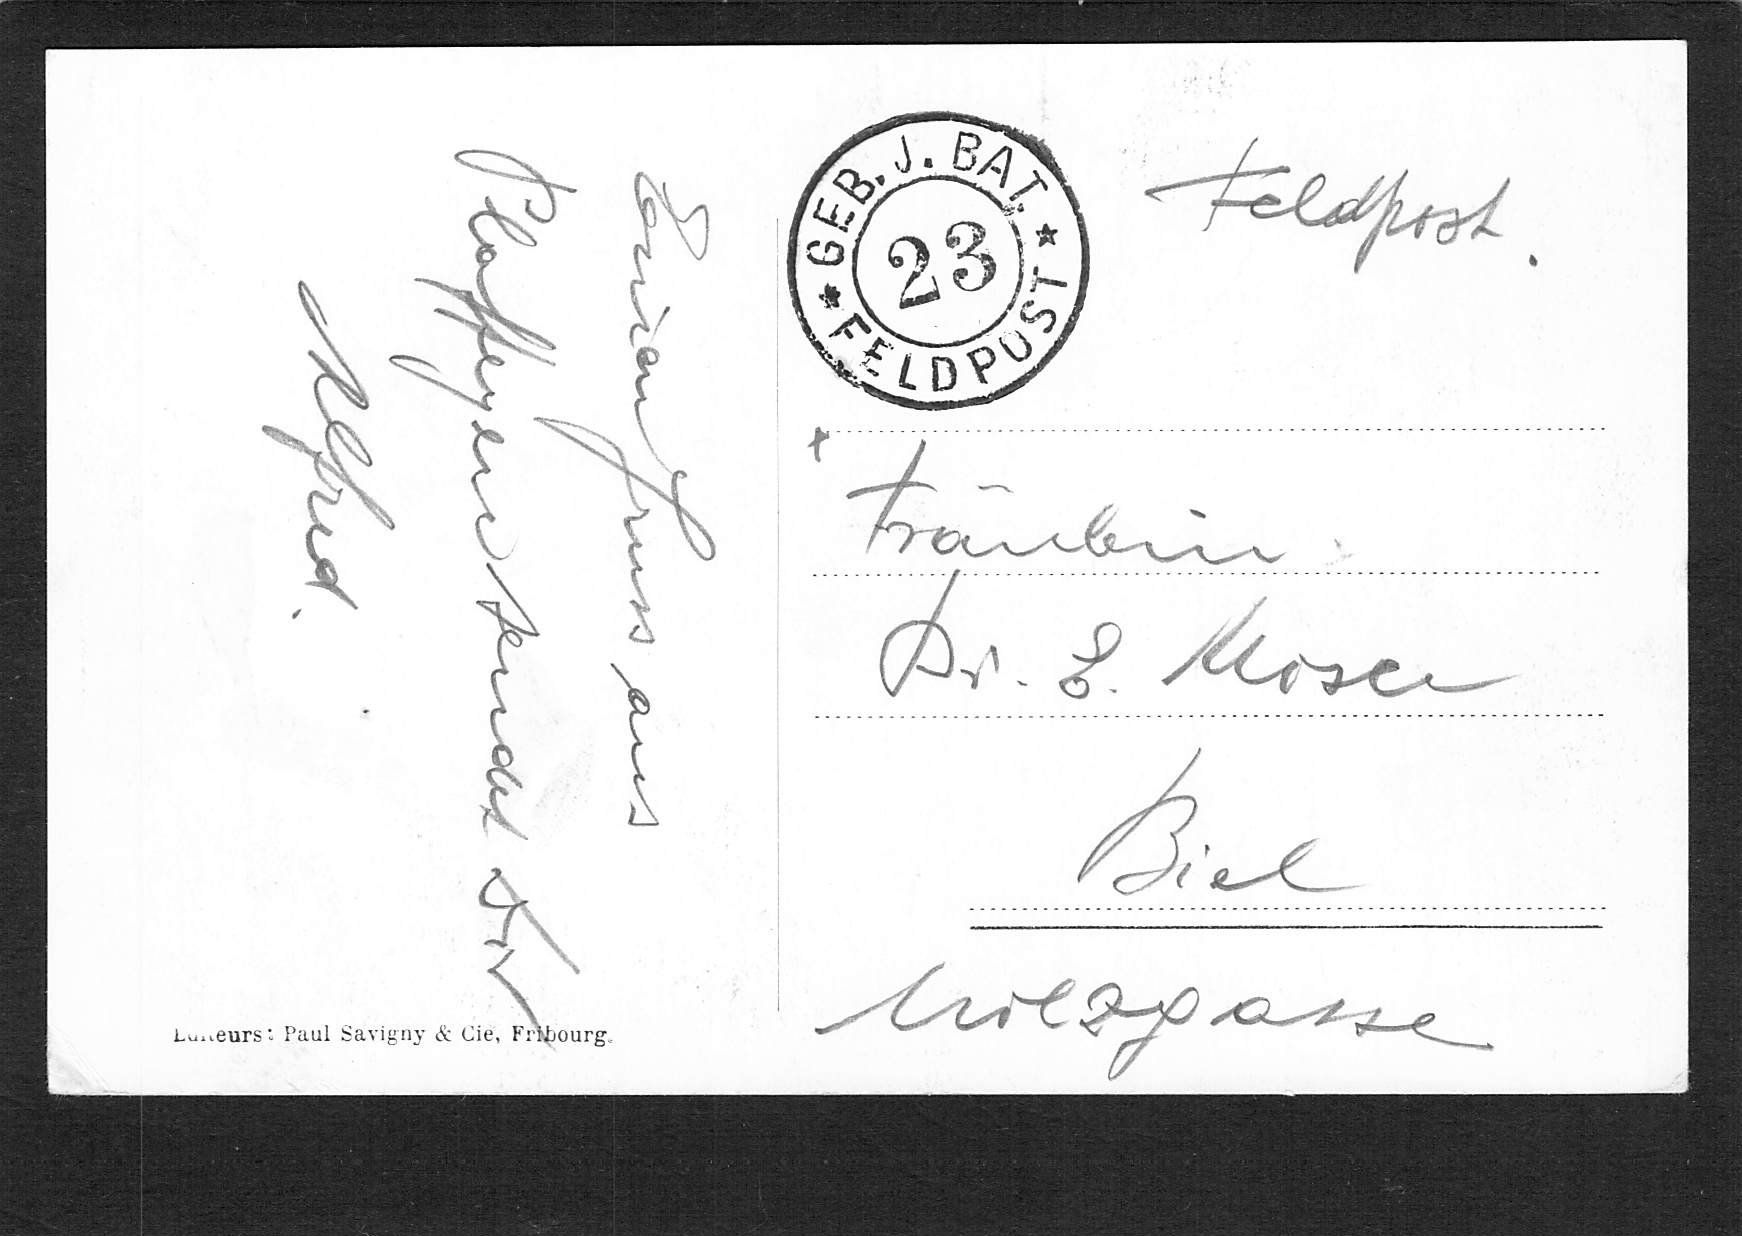 Einen Gruss aus
Plaffeyen sendet Dir
Alfred.
Editeurs: Paul Savigny & Cie, Fribourg.
GEB. J. BAT.
23
FELDPOST
Feldpost.
Fräulein
Dr. E. Moser
Biel